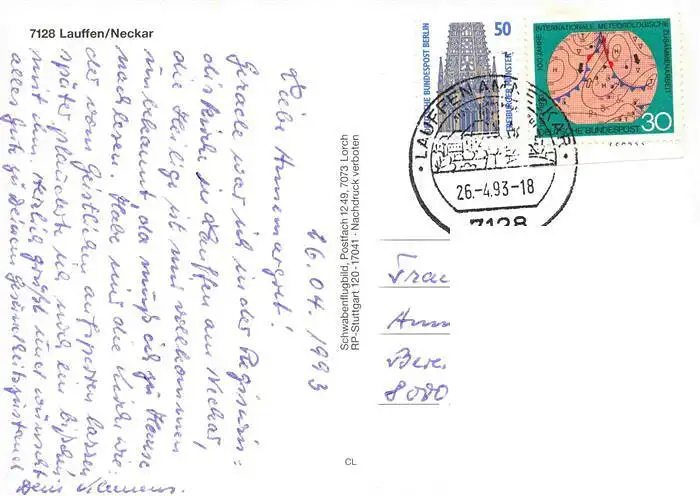 7128 Lauffen/Neckar
26.04.1993
Liebe Annemargret!
Gerade war ich in der Regiswin=
diskirche in Lauffen am Neckar,
die Heilige ist mir vollkommen
unbekannt da muß ich zu Hause
nachlesen. Habe mir die Kirche wie=
der vom Geistlichen aufsperren lassen
später plauderten wir noch ein bißchen
mit ihm. Herzlich grüßt und wünscht
alles Gute zu Deinem Gesundheitszustand
Dein Klemens.
Schwabenflugbild, Postfach 1249, 7073 Lorch
RP-Stuttgart 120-17041 · Nachdruck verboten
CL
DEUTSCHE BUNDESPOST BERLIN
50
FREIBURGER MÜNSTER
100 JAHRE INTERNATIONALE METEOROLOGISCHE ZUSAMMENARBEIT
DEUTSCHE BUNDESPOST 30
· LAUFFEN AM NECKAR ·
26.-4.93-18
7128
Frau
Ann
8000